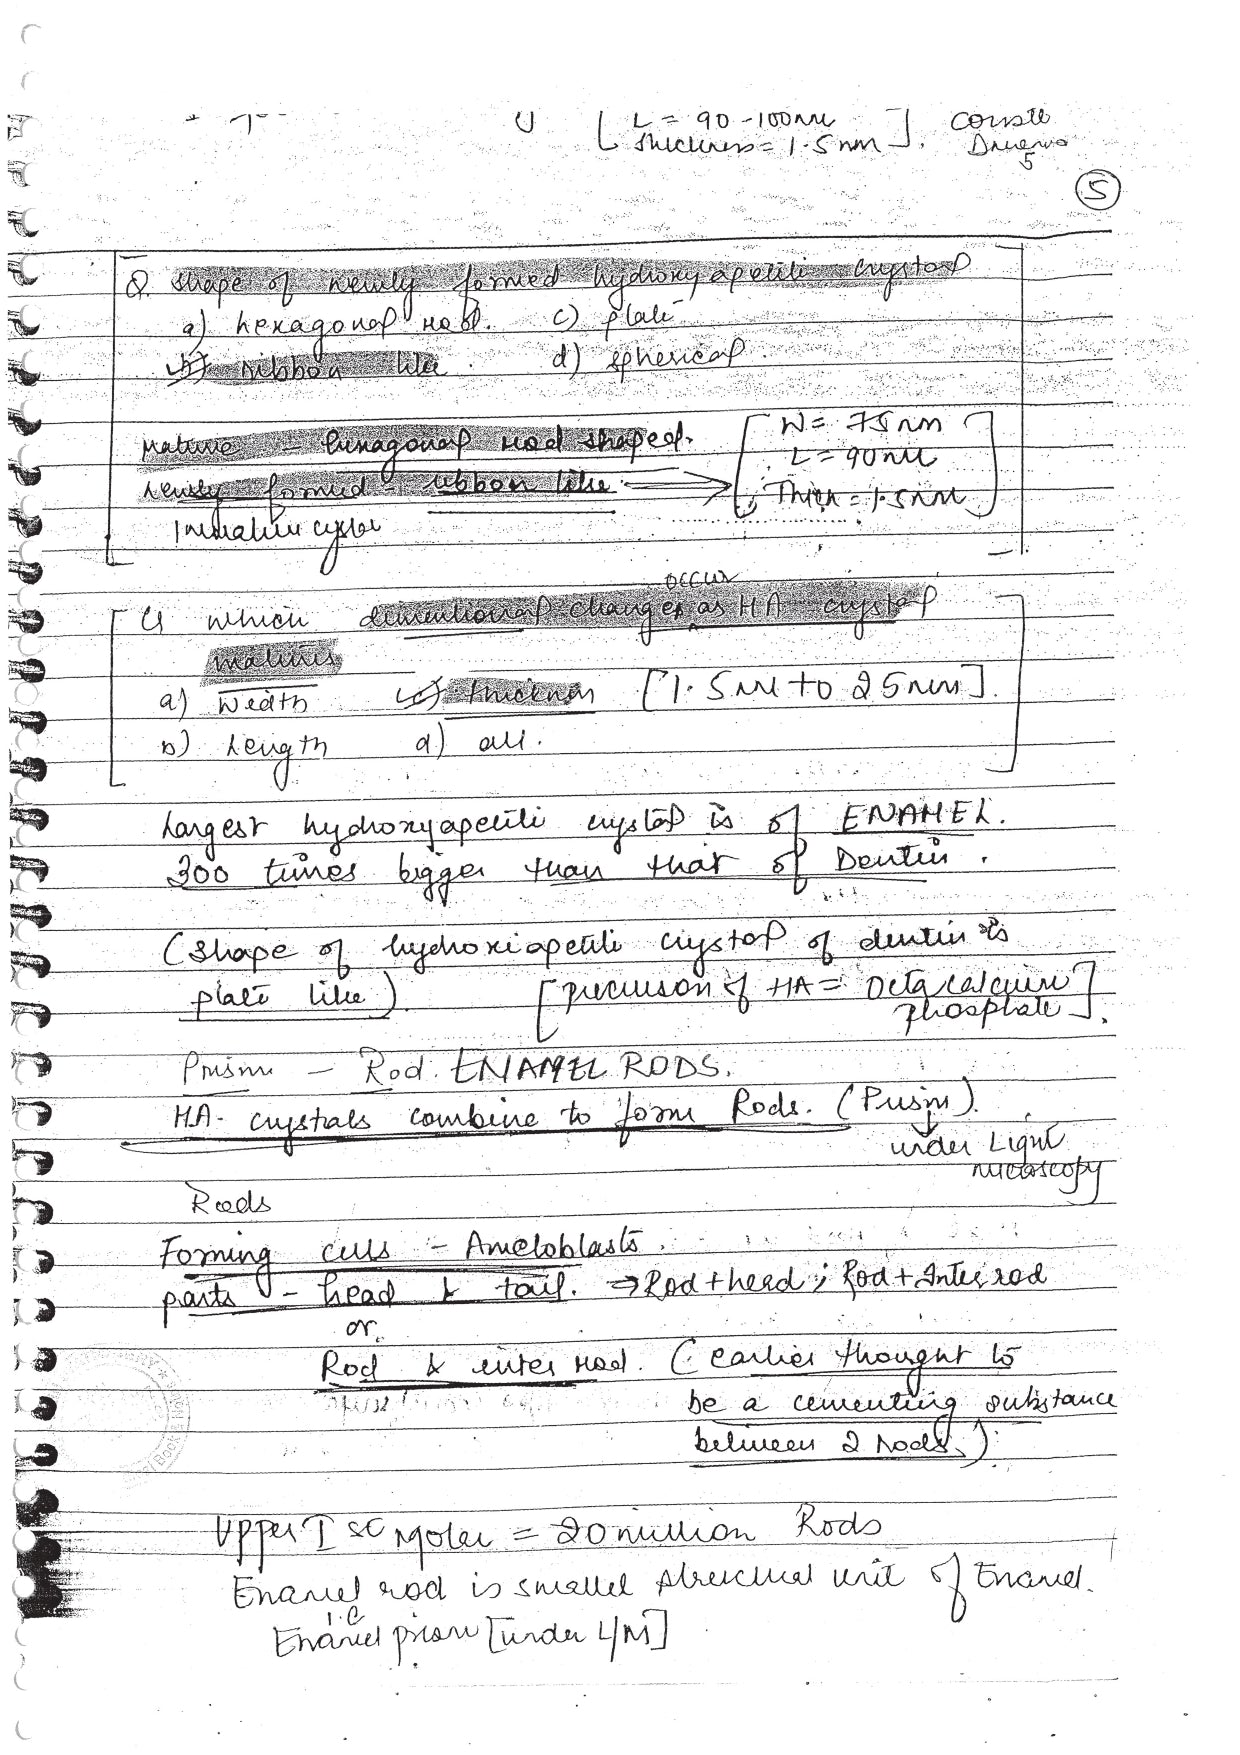 [ L = 90 - 100nm ]
thickness = 1.5nm
5
(5)
Q. shape of newly formed hydroxyapetite crystal
a) hexagonal rod. c) plate
b) ribbon like. d) spherical.
Mature - hexagonal rod shaped.
newly formed - ribbon like
Immature
[ W = 75nm
L = 90nm
Thick = 1.5nm ]
Q which dimentional changes occur as HA crystal
matures
a) Width c) thickness [1.5nm to 25nm].
b) Length d) all.
Largest hydroxyapetite crystal is of ENAMEL.
300 times bigger than that of Dentin.
(shape of hydroxiapetite crystal of dentin is
plate like) [precursor of HA = Octa calcium
phosphate].
Prism - Rod. ENAMEL RODS.
HA- crystals combine to form Rods. (Prism).
under Light
microscopy
Rods
Forming cells - Ameloblasts.
parts - head & tail. ⇒ Rod + head ; Rod + Inter rod
or.
Rod & inter rod. (earlier thought to
be a cementing substance
between 2 rods.)
Upper I st Molar = 20 million Rods
Enamel rod is smallest structural unit of Enamel.
i.e
Enamel prism [under L/M]